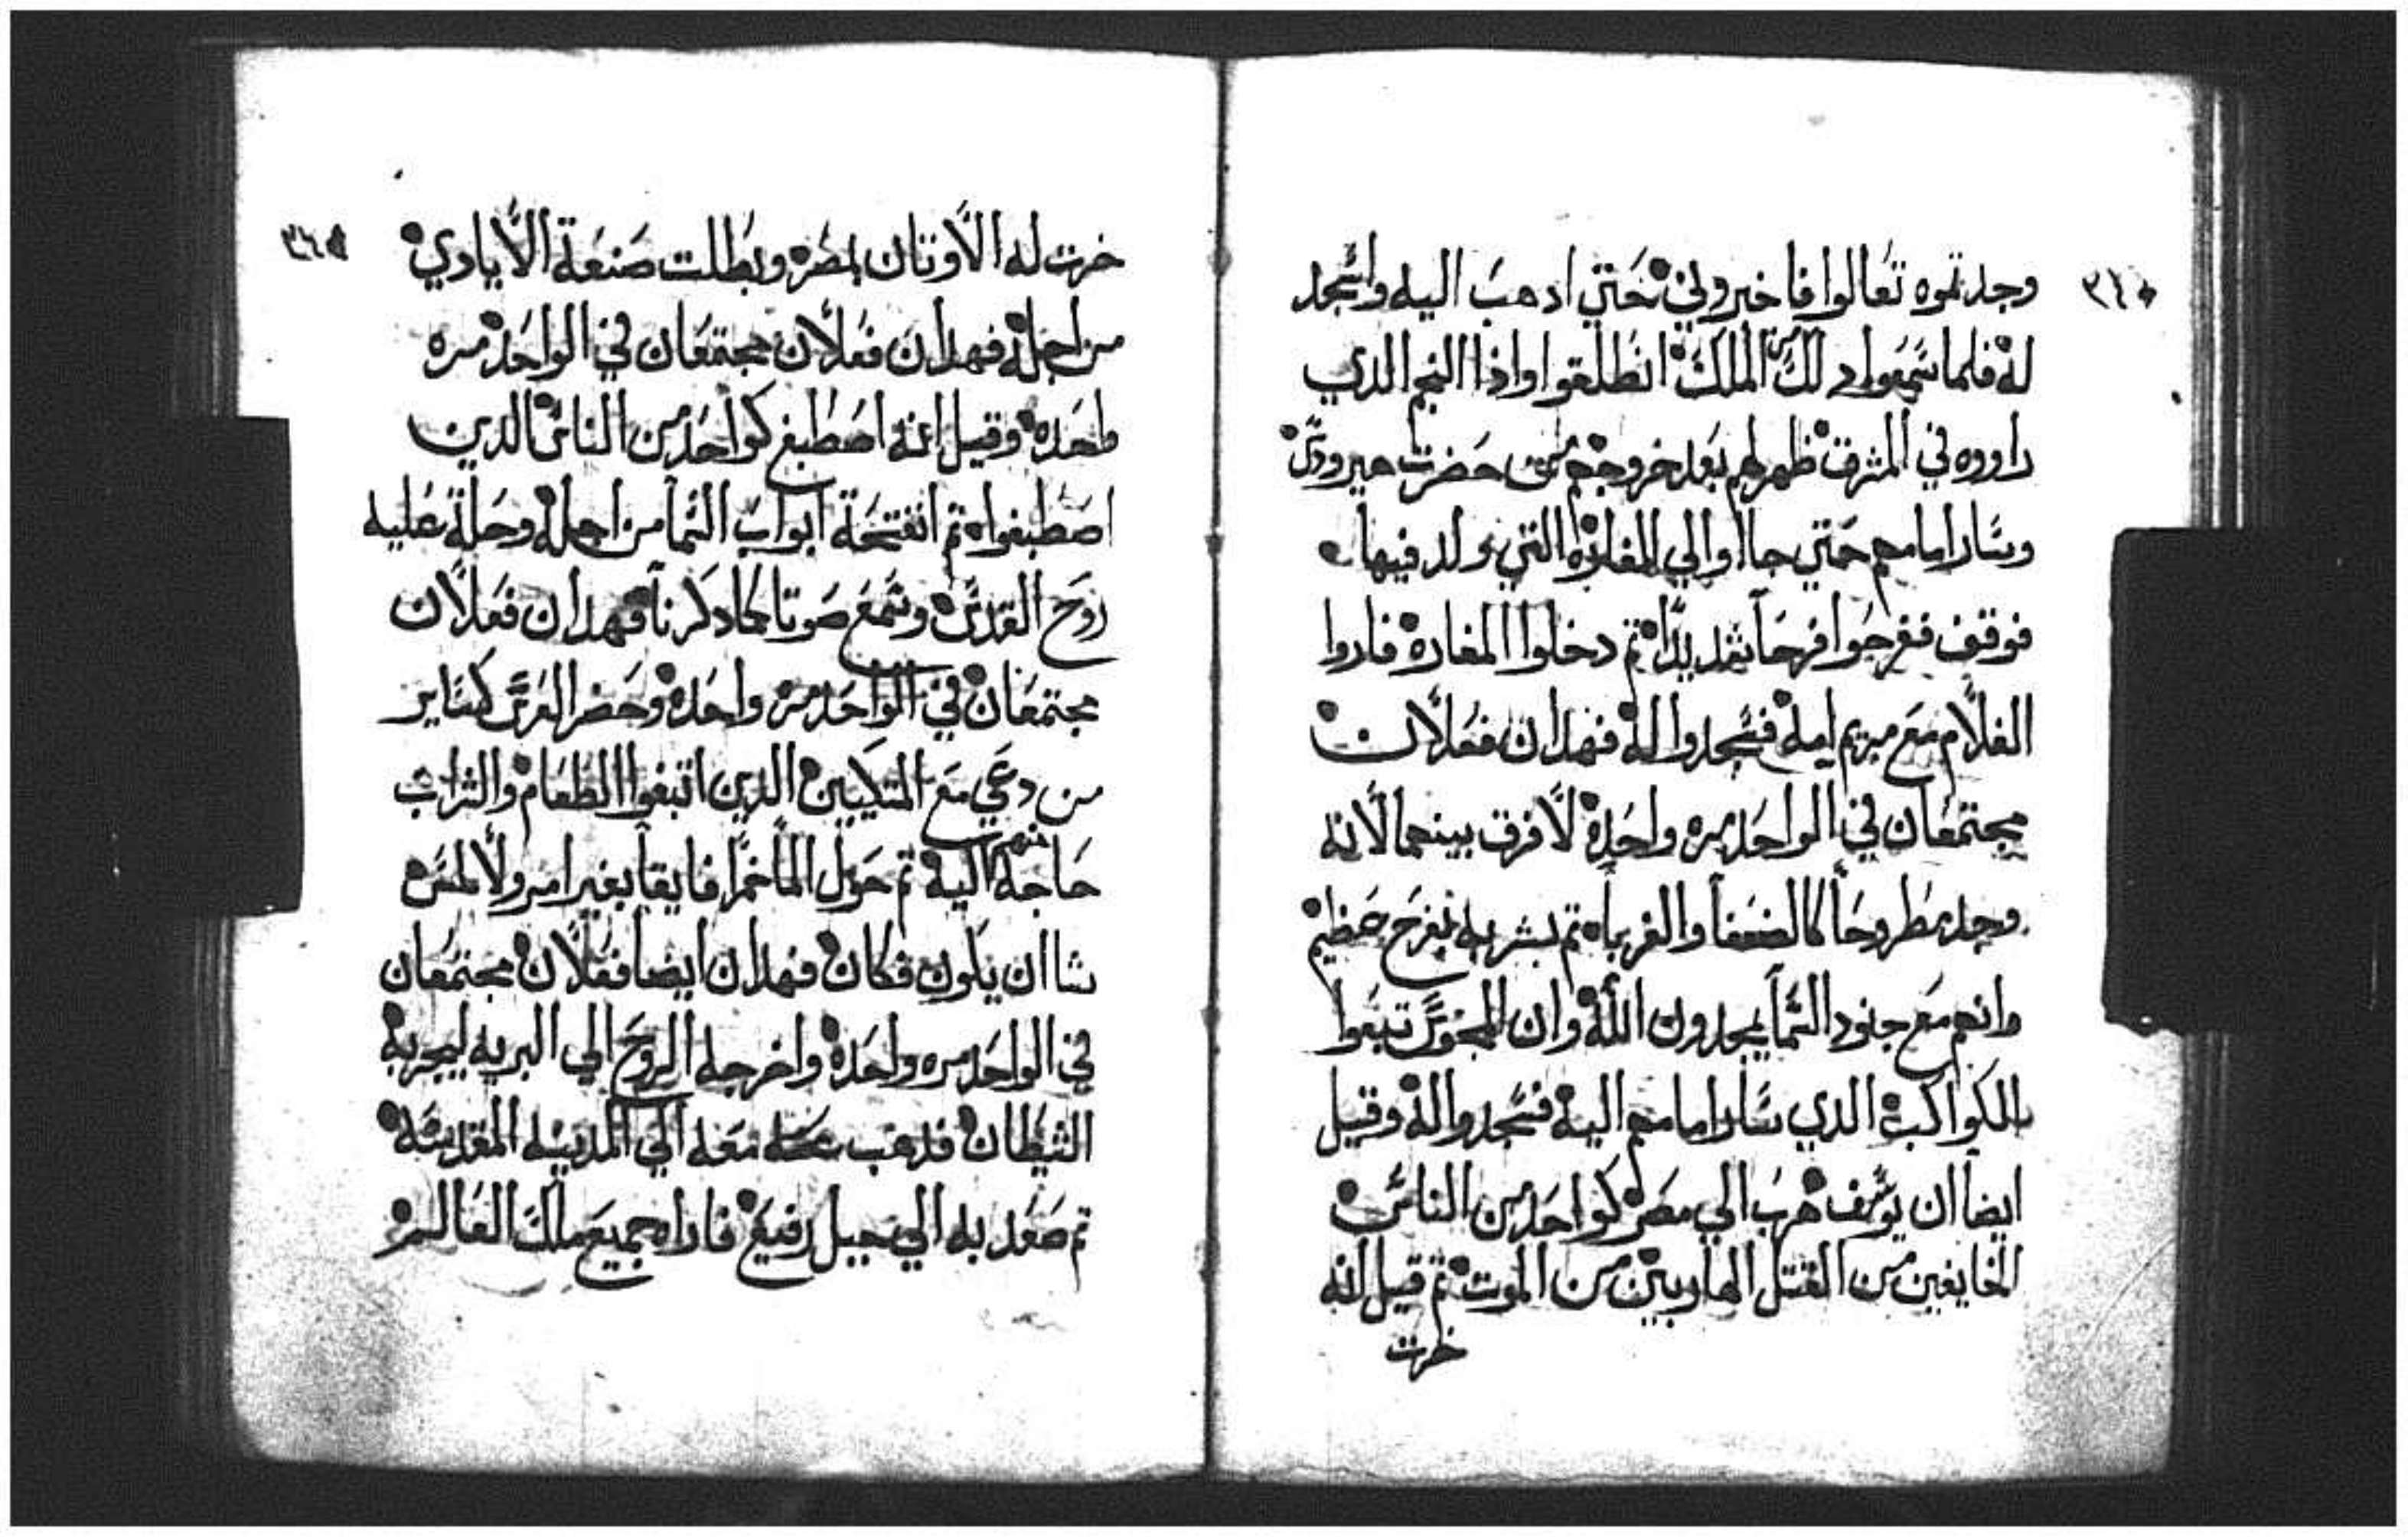 ٣٤٠
وجدتموه تعالوا فاخبروني حتي ادهب اليه واسجد
له فلما سمعوا دلك من الملك انطلقوا واذا النجم الدي
راووه في المشرق ظهر لهم بعد خروجهم من حضرت هيرودس
وسار امامهم حتي جااوا الي المغاره التي ولد فيها
فوقف ففرحوا فرحا شديدا تم دخلوا المغاره فاروا
الغلام مع مريم امه فسجدوا له فهدان فعلان
مجتمعان في الواحد مره واحده لا فرق بينهما لانه
وجد مطروحا كالضعفا والغربا تم بشر به بفرح عظيم
وانهم مع جنود السما يمجدون الله وان المجوس تبعوا
الكواكب الدي سار امامهم اليه فسجدوا له وقيل
ايضا ان يوسف هرب الي مصر كواحد من الناس
الخايفين من القتل الهاربين من الموت تم قيل انه
خرت
٣٤٥
خرت له الاوتان بمصر وبطلت صنعة الايادي
من اجله فهدان فعلان مجتمعان في الواحد مره
واحده وقيل انه اصطبغ كواحد من الناس الدين
اصطبغوا تم انفتحة ابواب السما من اجله وحلة عليه
روح القدس وسمع صوتا كما دكرنا فهدان فعلان
مجتمعان في الواحد مره واحده وحضر العرس كساير
من دعي مع المتكيين الدين اتبغوا الطعام والشراب
حاجة منهم اليه تم حول الما خمرا فايقا بغير امر ولا لمس
شا ان يكون فكان فهدان ايضا فعلان مجتمعان
في الواحد مره واحده واخرجه الروح الي البريه ليجربه
الشيطان فدهب معه الي المدينه المقدسه
تم صعد به الي جبل رفيع فاراه جميع ملك العالم